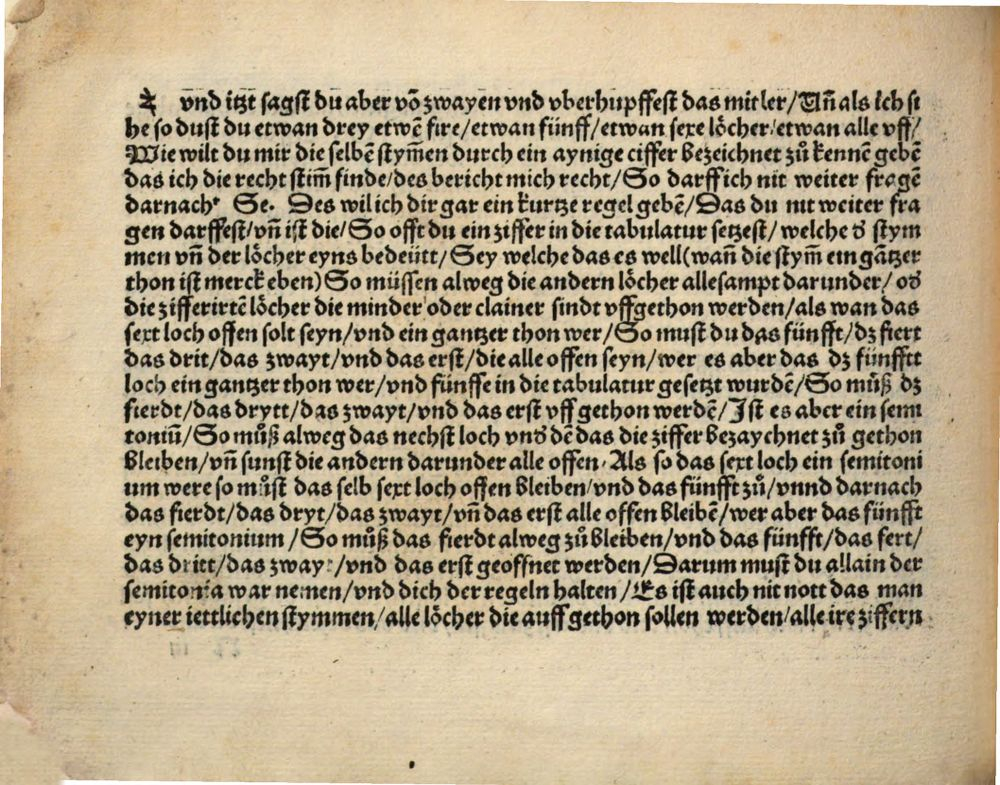 vnd itzt sagst du aber võ zwayen vnd vberhupffest das mitler/Vñ als ich si
he so dust du etwan drey etwẽ fire/etwan fünff/etwan sexe löcher/etwan alle vff/
Wie wilt du mir die selbẽ stym̃en durch ein aynige ciffer bezeichnet zů kennẽ gebẽ
das ich die recht stim̃ finde/des bericht mich recht/So darff ich nit weiter fragẽ
darnach. Se. Des wil ich dir gar ein kurtze regel gebẽ/Das du nit weiter fra
gen darffest/vñ ist die/So offt du ein ziffer in die tabulatur setzest/welche ð stym
men vñ der löcher eyns bedeütt/Sey welche das es well(wañ die stym̃ ein gãtzer
thon ist merck eben)So müssen alweg die andern löcher allesampt darunder/oð
die zifferirtẽ löcher die minder oder clainer sindt vffgethon werden/als wan das
sext loch offen solt seyn/vnd ein gantzer thon wer/So must du das fünfft/dz fiert
das drit/das zwayt/vnd das erst/die alle offen seyn/wer es aber das dz fünfftt
loch ein gantzer thon wer/vnd fünffe in die tabulatur gesetzt wurdẽ/So můß dz
fierdt/das drytt/das zwayt/vnd das erst vff gethon werdẽ/Ist es aber ein semi
toniũ/So můß alweg das nechst loch vnð dẽ das die ziffer bezaychnet zů gethon
bleiben/vñ sunst die andern darunder alle offen. Als so das sext loch ein semitoni
um were so můst das selb sext loch offen bleiben/vnd das fünfft zů/vnnd darnach
das fierdt/das dryt/das zwayt/vñ das erst alle offen bleibẽ/wer aber das fünfft
eyn semitonium/So můß das fierdt alweg zů bleiben/vnd das fünfft/das fert/
das dritt/das zway/vnd das erst geoffnet werden/Darum must du allain der
semitonia war nemen/vnd dich der regeln halten/Es ist auch nit nott das man
eyner iettlichen stymmen/alle löcher die auff gethon sollen werden/alle ire ziffern